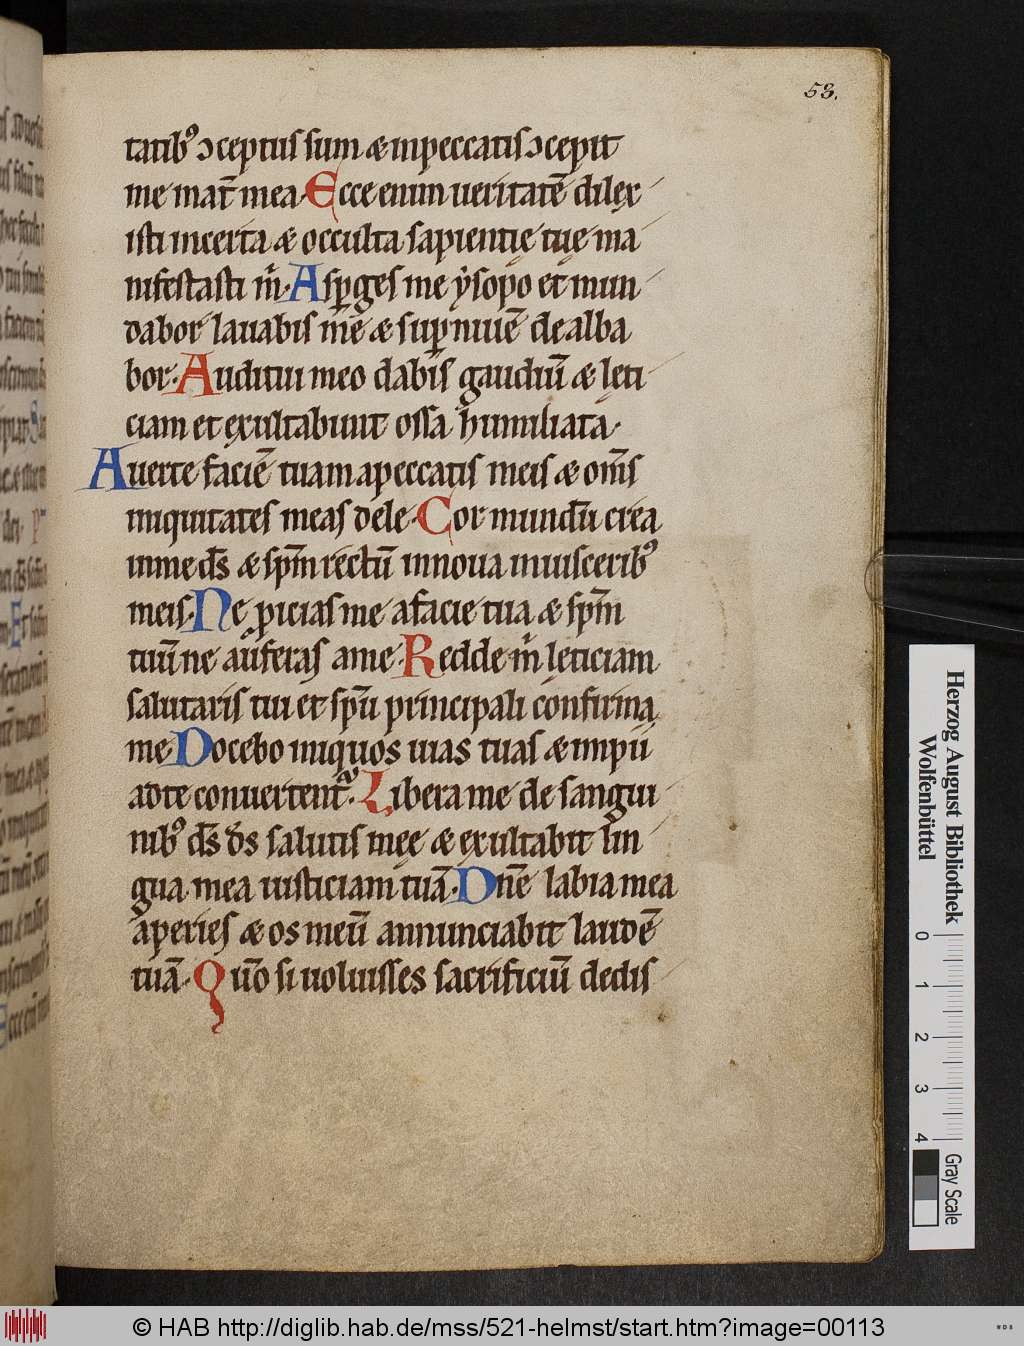 53.
tatibꝰ ↄceptus sum & inpeccatis ↄcepit
me mat̄ mea. Ecce enim ueritatē dilex
isti incerta & occulta sapientię tuę ma
nifestasti m̄. Asꝑges me ẏsopo et mun
dabor lauabis me & suꝑ niuē dealba
bor. Auditui meo dabis gaudiū & leti
ciam et exultabunt ossa humiliata.
Auerte faciē tuam apeccatis meis & om̄s
iniquitates meas dele. Cor mundū crea
inme ds̄ & sp̄m rectū innoua inuisceribꝰ
meis. Ne ꝓicias me afacie tua & sp̄m
tuū ne auferas ame. Redde m̄ leticiam
salutaris tui et sp̄u principali confirma
me Docebo iniquos uias tuas & impii
adte conuertent᷑. Libera me de sangui
nibꝰ ds̄ ds̄ salutis meę & exultabit lin
gua mea iusticiam tuā. Dn̄e labia mea
aperies & os meū annunciabit laudē
tuā. Qūo si uoluisses sacrificiū dedis
Herzog August Bibliothek
Wolfenbüttel
0 1 2 3 4
Gray Scale
© HAB http://diglib.hab.de/mss/521-helmst/start.htm?image=00113